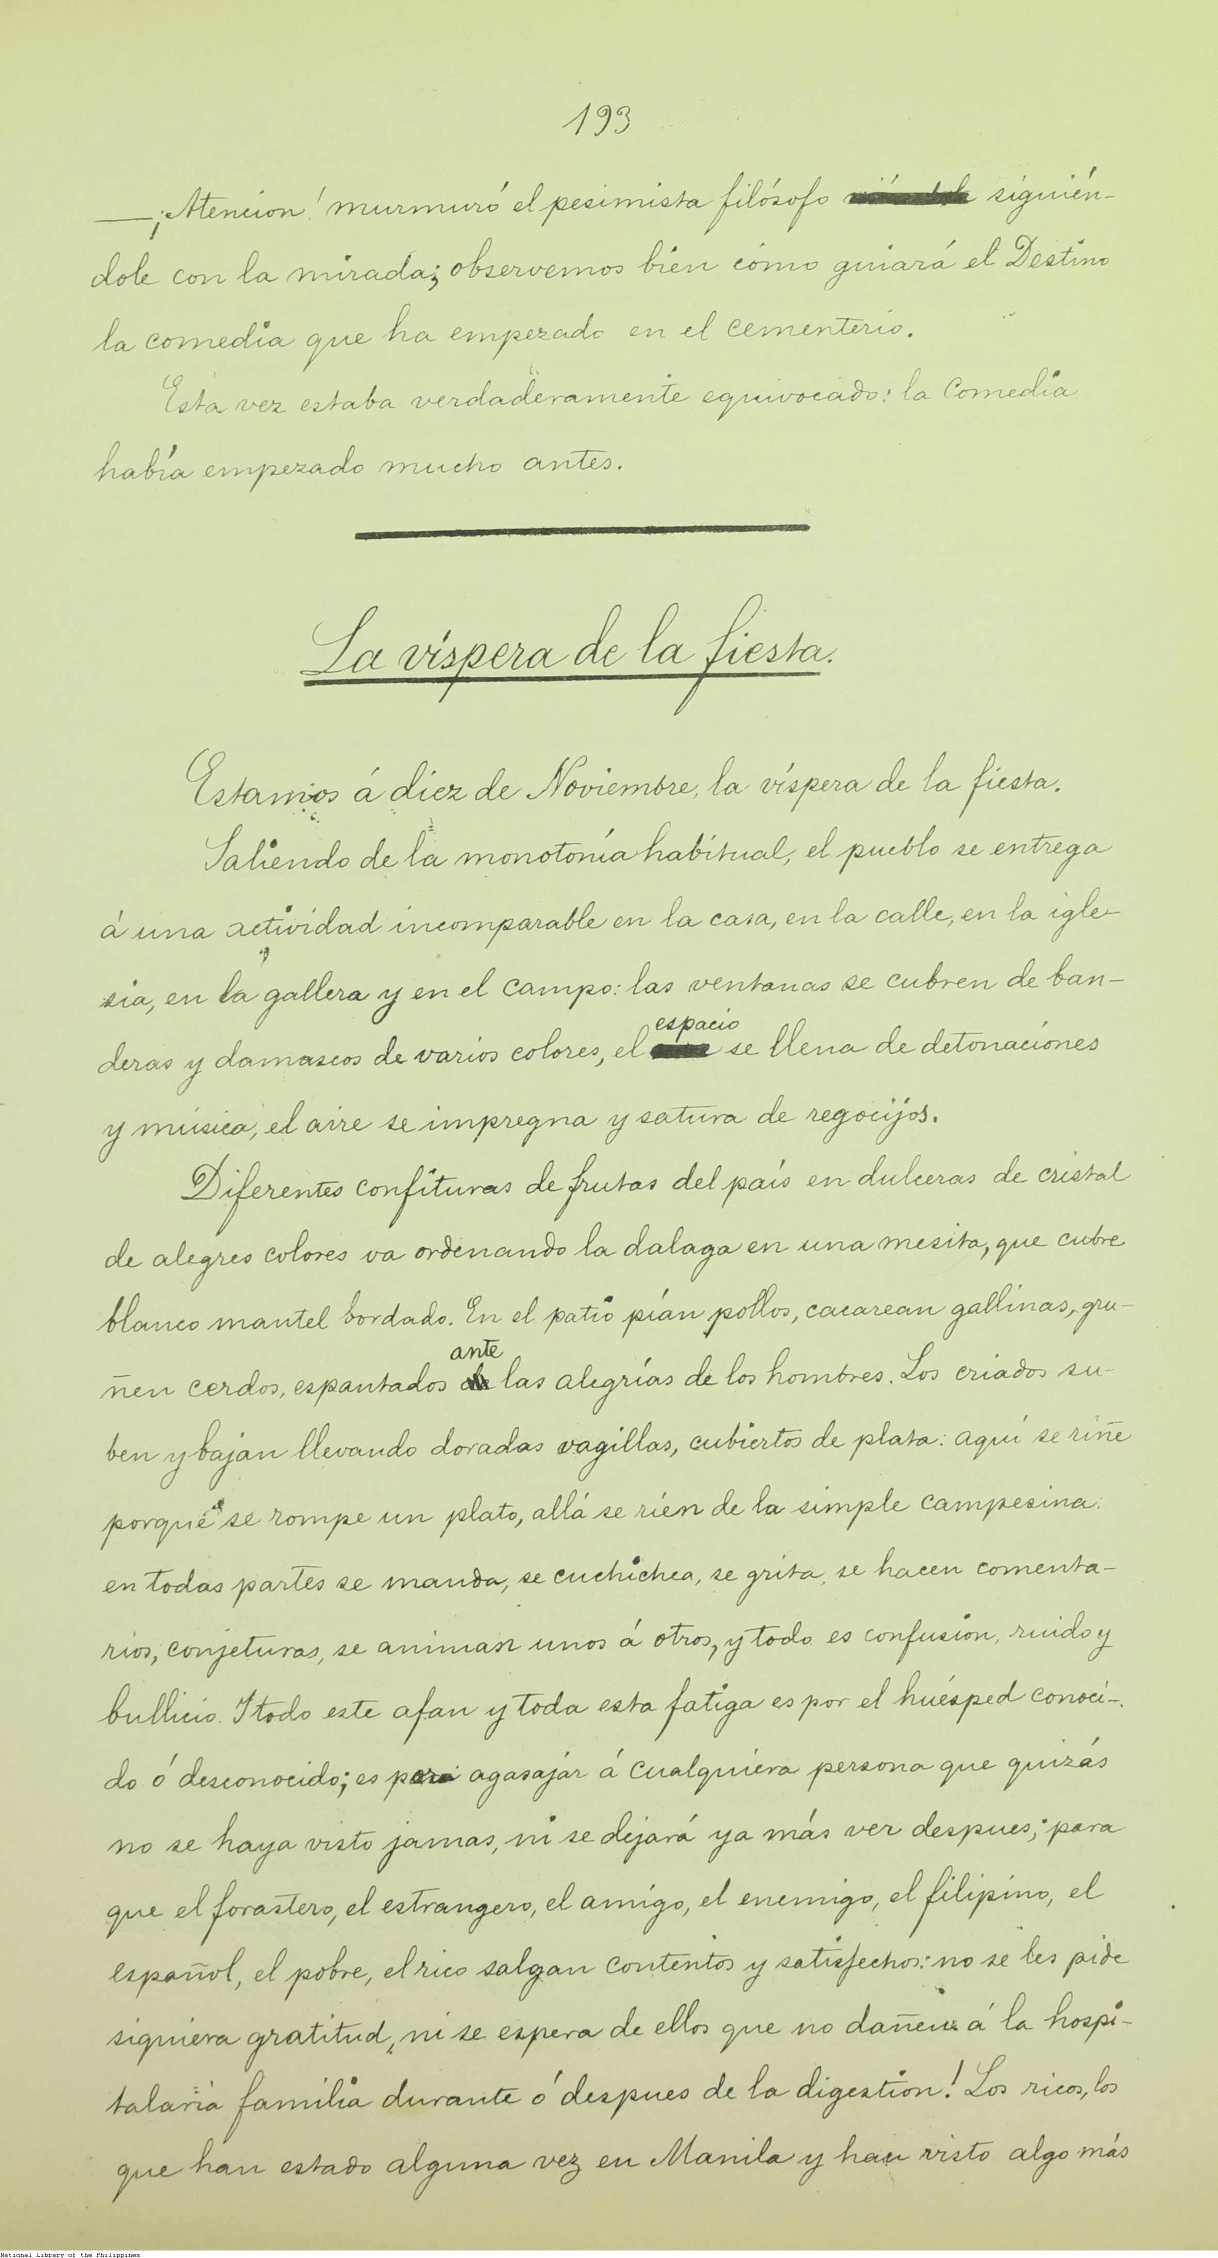 193
—¡Atencion! murmuró el pesimista filósofo siguién-
dole con la mirada; observemos bien cómo guiará el Destino
la comedia que ha empezado en el cementerio.
Esta vez estaba verdaderamente equivocado: la Comedia
había empezado mucho antes.
La víspera de la fiesta.
Estamos á diez de Noviembre, la víspera de la fiesta.
Saliendo de la monotonía habitual, el pueblo se entrega
á una actividad incomparable en la casa, en la calle, en la igle-
sia, en la gallera y en el campo: las ventanas se cubren de ban-
espacio
deras y damascos de varios colores, el se llena de detonaciones
y música, el aire se impregna y satura de regocijos.
Diferentes confituras de frutas del país en dulceras de cristal
de alegres colores va ordenando la dalaga en una mesita, que cubre
blanco mantel bordado. En el patio pían pollos, cacarean gallinas, gru-
ante
ñen cerdos, espantados las alegrías de los hombres. Los criados su-
ben y bajan llevando doradas vagillas, cubiertos de plata: aquí se riñe
porque se rompe un plato, allá se ríen de la simple campesina:
en todas partes se manda, se cuchichea, se grita, se hacen comenta-
rios, conjeturas, se animan unos á otros, y todo es confusion, ruido y
bullicio. I todo este afan y toda esta fatiga es por el huésped conoci-
do ó desconocido; es para agasajar á cualquiera persona que quizás
no se haya visto jamas, ni se dejará ya más ver despues; para
que el forastero, el estrangero, el amigo, el enemigo, el filipino, el
español, el pobre, el rico salgan contentos y satisfechos: no se les pide
siquiera gratitud, ni se espera de ellos que no dañen á la hospi-
talaria familia durante ó despues de la digestion! Los ricos, los
que han estado alguna vez en Manila y han visto algo más
National Library of the Philippines